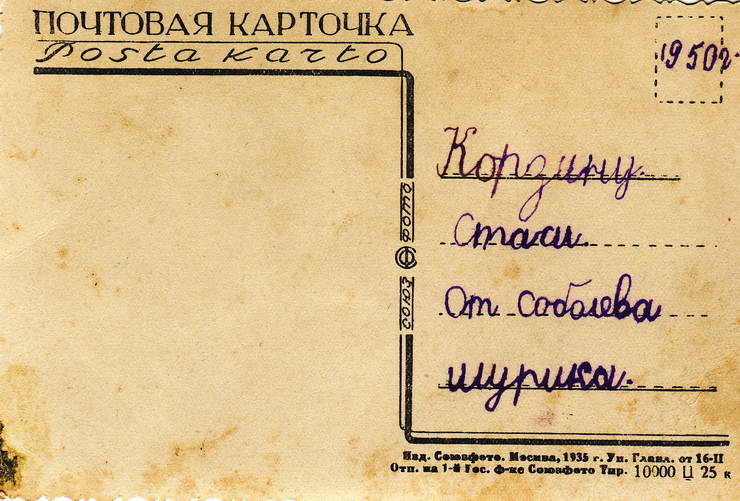 ПОЧТОВАЯ КАРТОЧКА
Posta karto
1950г
Кордину
Стаси.
От соболева
шурика.
СОЮЗ ФОТО
Изд. Союзфото. Москва, 1935 г. Уп. Главл. от 16-II
Отп. на 1-й Гос. ф-ке Союзфото Тир. 10000 Ц 25 к